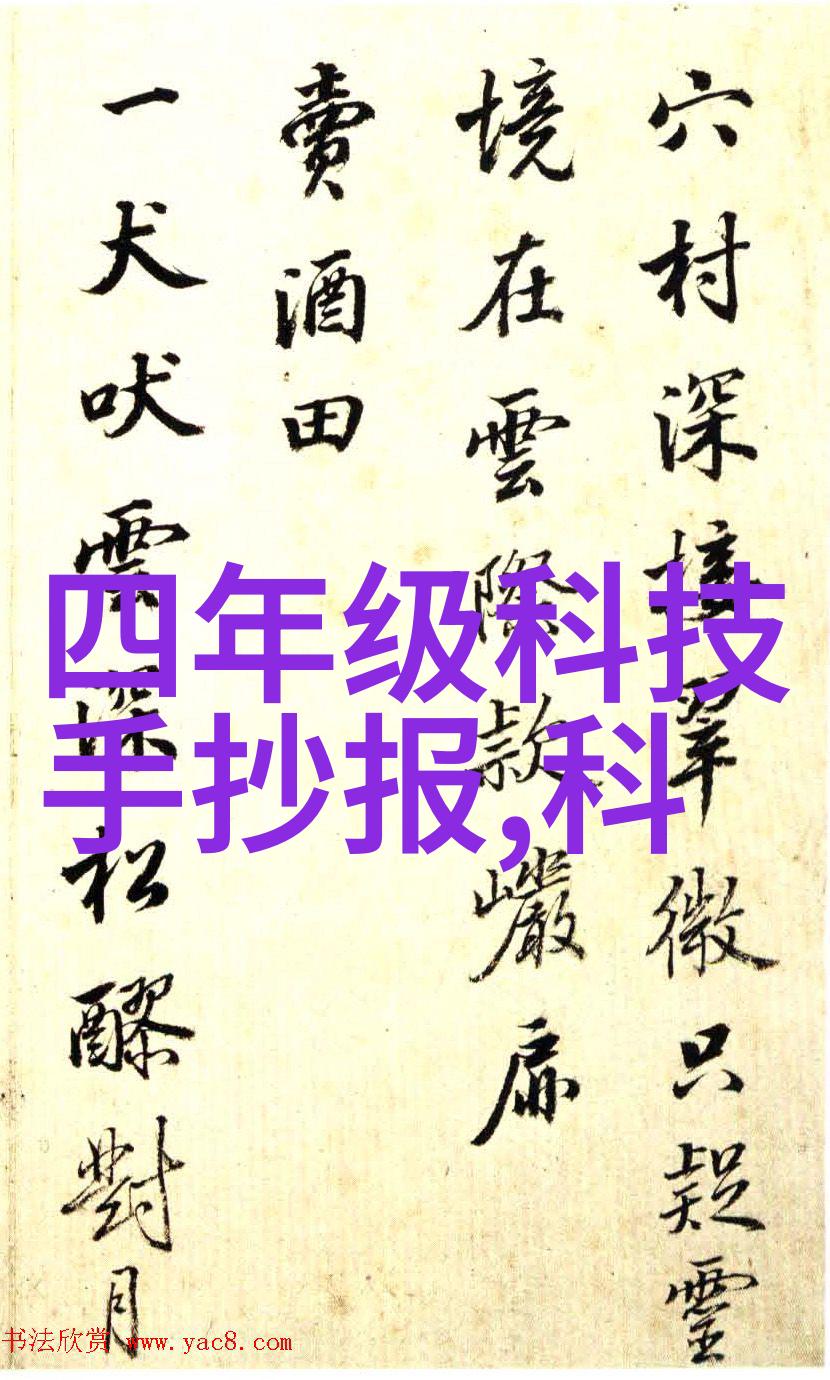 穴村深接翠微只疑靈
境在雲際款巗扉
賣酒田
一犬吠雲深松醪對月
四年级科技
手抄报,科
书法欣赏 www.yac8.com